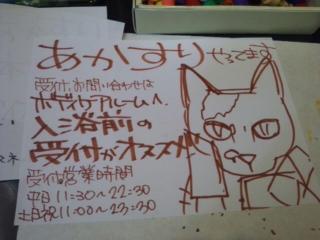 あかすりやってます
受付、お問い合わせは
ボディケアルームへ
入浴前の
受付がオススメ
受付営業時間
平日11:30〜22:30
土日祝11:00〜23:30